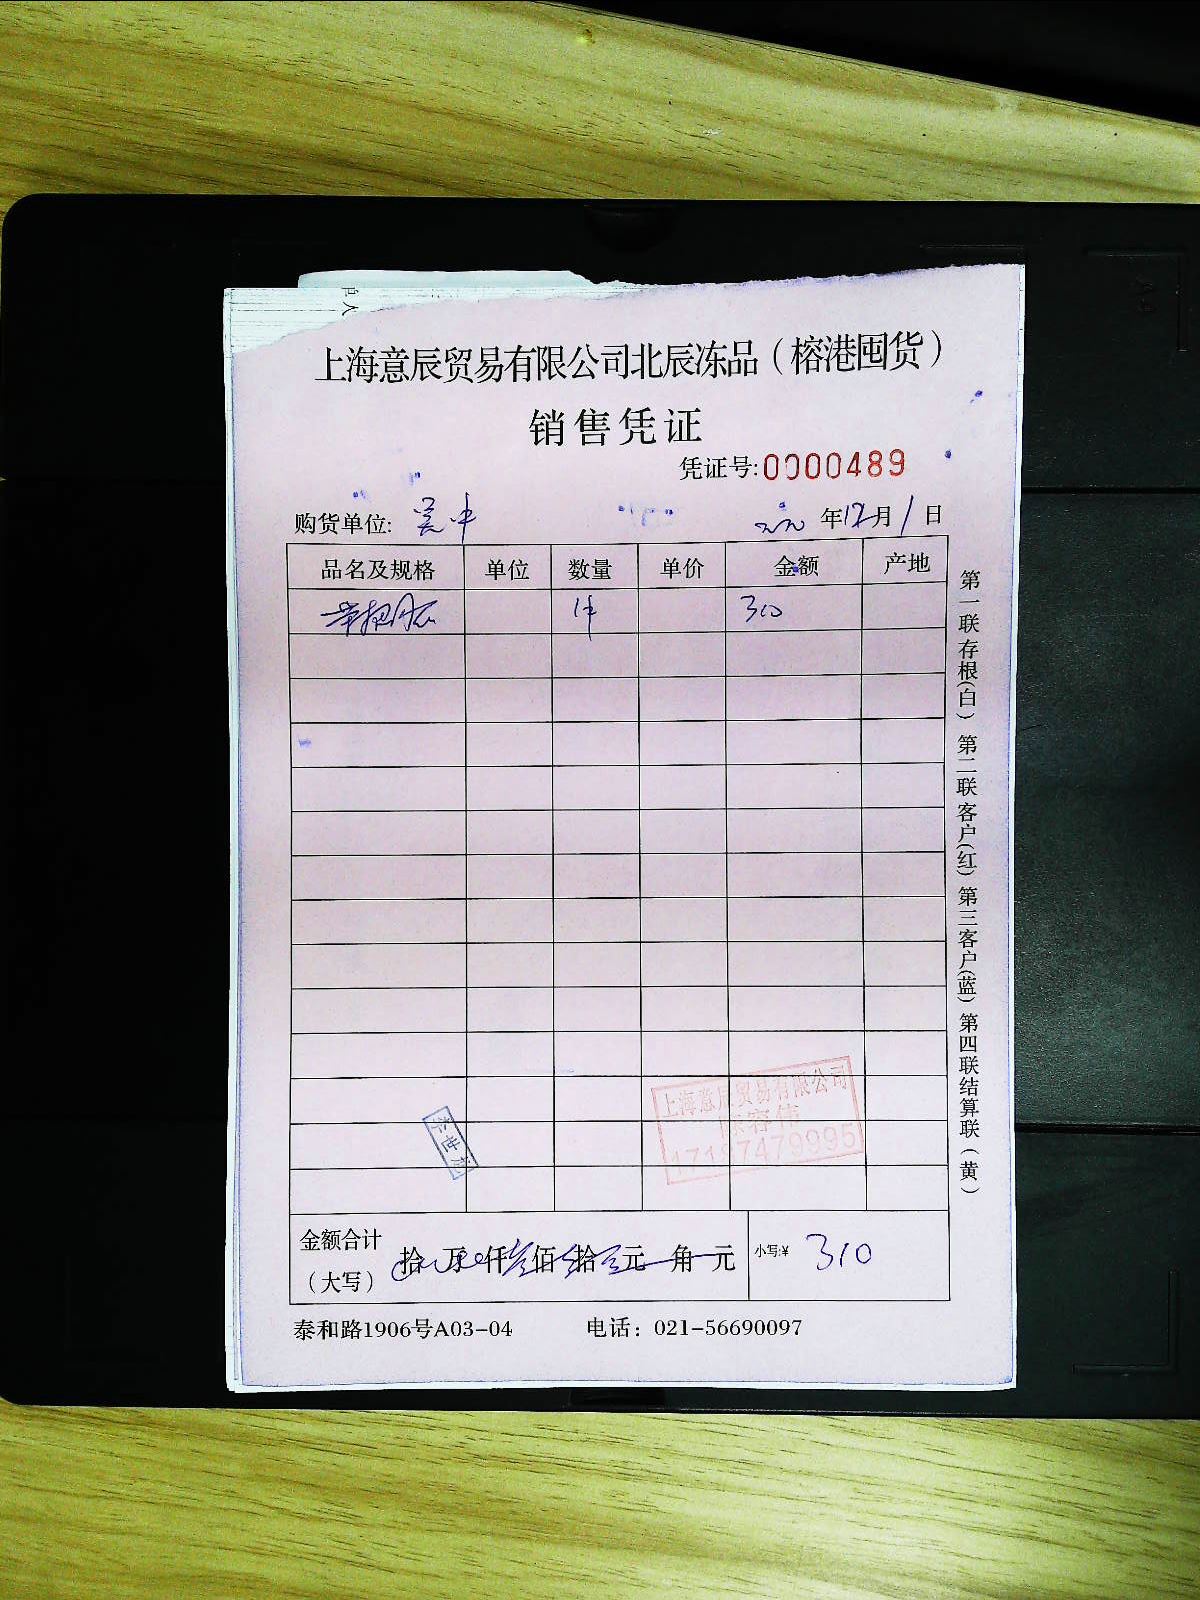 上海意辰贸易有限公司北辰冻品（榕港囤货）
销售凭证
凭证号:0000489
购货单位: 吴中 年12月1日
品名及规格 单位 数量 单价 金额 产地
1件 310
上海意辰贸易有限公司
容伟
李世龙
金额合计 拾万仟叁佰壹拾元角元 小写:¥ 310
（大写）
泰和路1906号A03-04 电话：021-56690097
第一联存根(白) 第二联客户(红) 第三客户(蓝) 第四联结算联（黄）